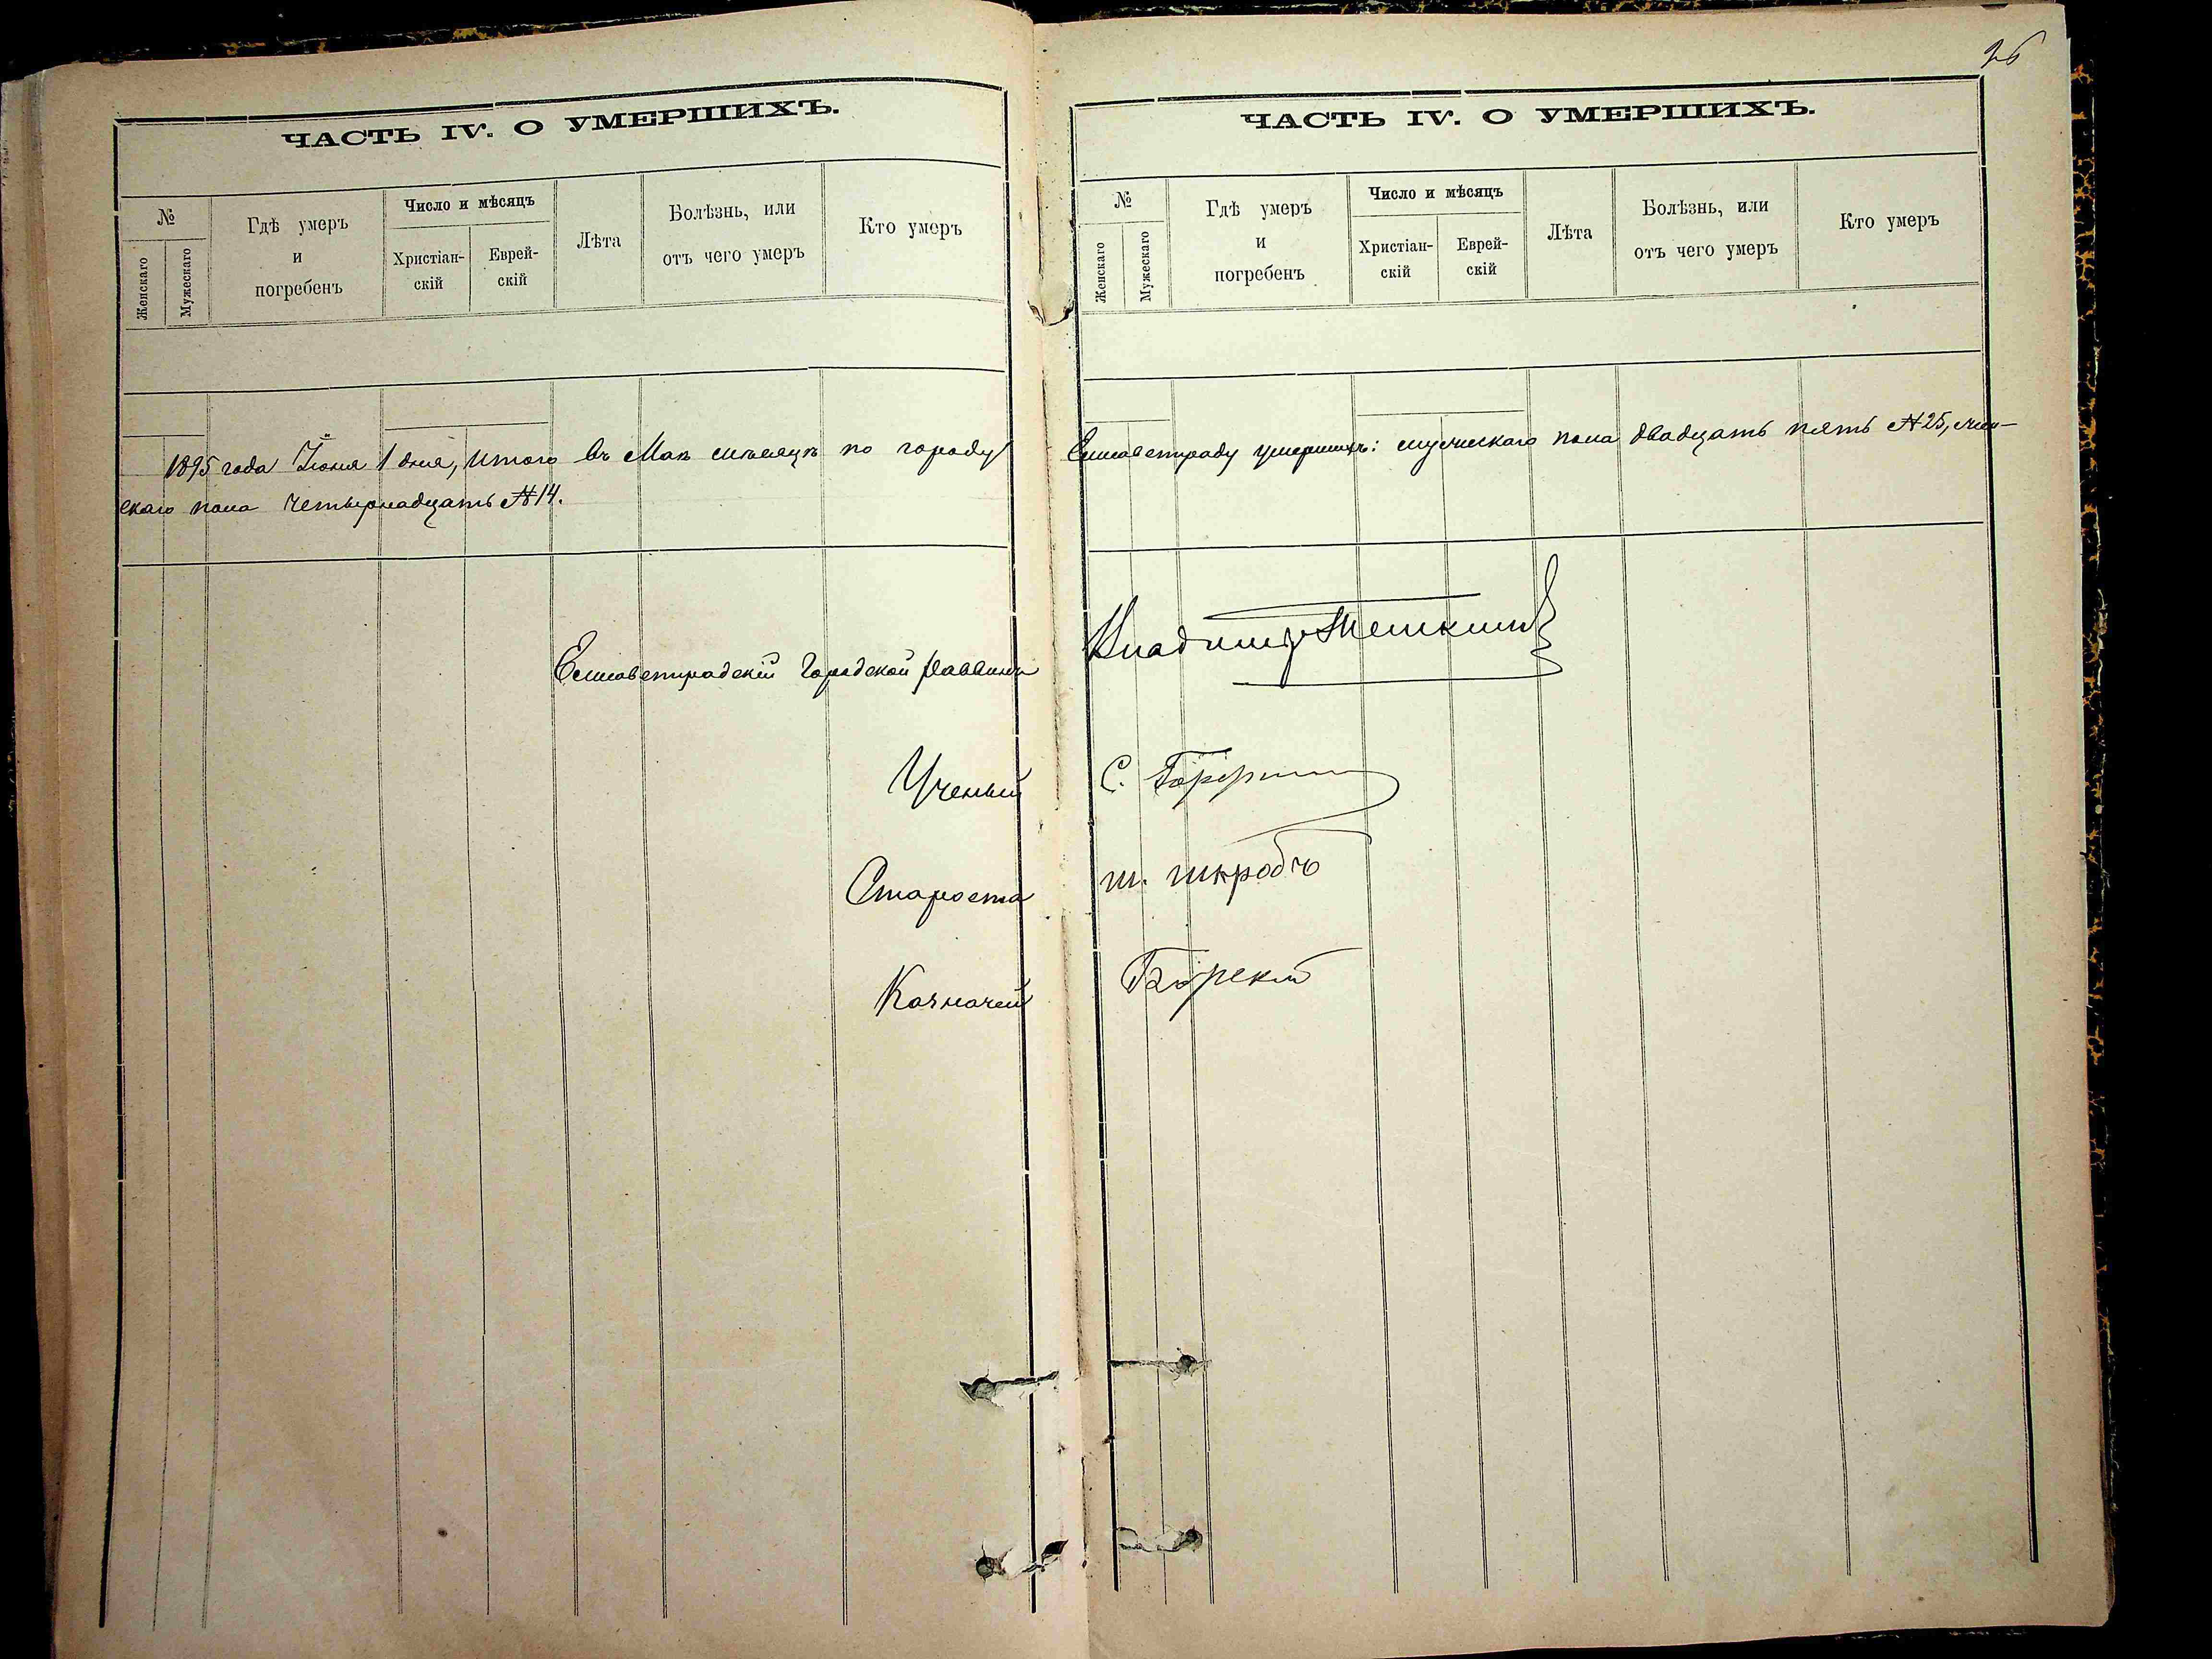 26
ЧАСТЬ IV. О УМЕРШИХЪ.
№
Женскаго
Мужескаго
Гдѣ умеръ
и
погребенъ
Число и мѣсяцъ
Христіан-
скій
Еврей-
скій
Лѣта
Болѣзнь, или
отъ чего умеръ
Кто умеръ
ЧАСТЬ IV. О УМЕРШИХЪ.
№
Женскаго
Мужескаго
Гдѣ умеръ
и
погребенъ
Число и мѣсяцъ
Христіан-
скій
Еврей-
скій
Лѣта
Болѣзнь, или
отъ чего умеръ
Кто умеръ
1895 года Іюня 1 дня, итого въ Маѣ мѣсяцѣ по городу Елисаветграду умершихъ: мужескаго пола двадцать пять №25, жен-
скаго пола четырнадцать №14.
Елисаветградскій Городской Раввинъ Владимір
Ученый С.
Староста Ш. Шкробъ
Казначей